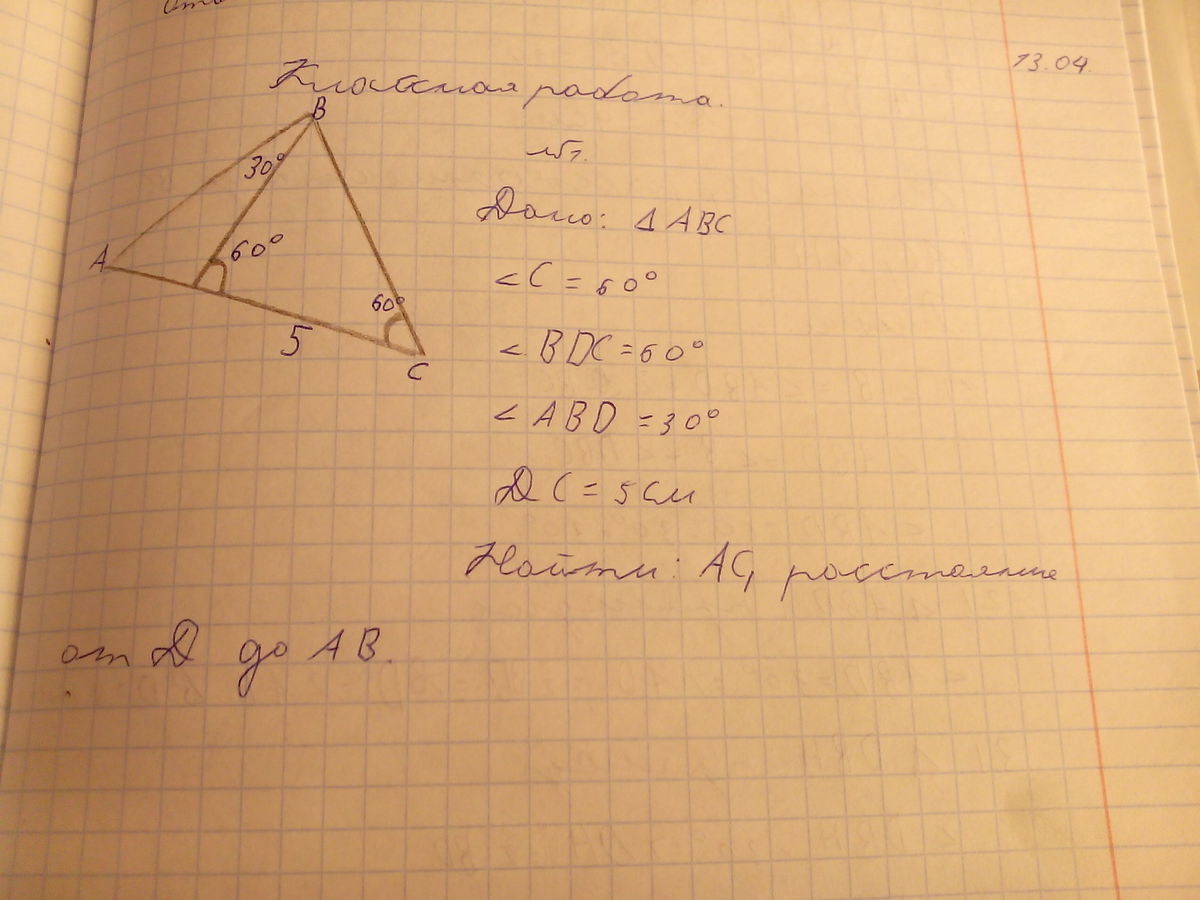 13.04.
Классная работа.
B
30°
№1.
Дано: Δ ABC
A
60°
∠C = 60°
60°
5
C
∠ BDC = 60°
∠ ABD = 30°
DC = 5 см
Найти: AC, расстояние
от D до AB.